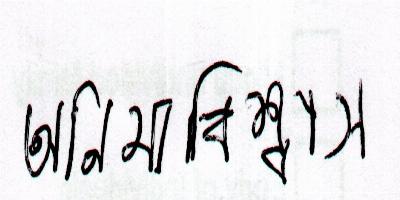 অনিমা বিশ্বাস